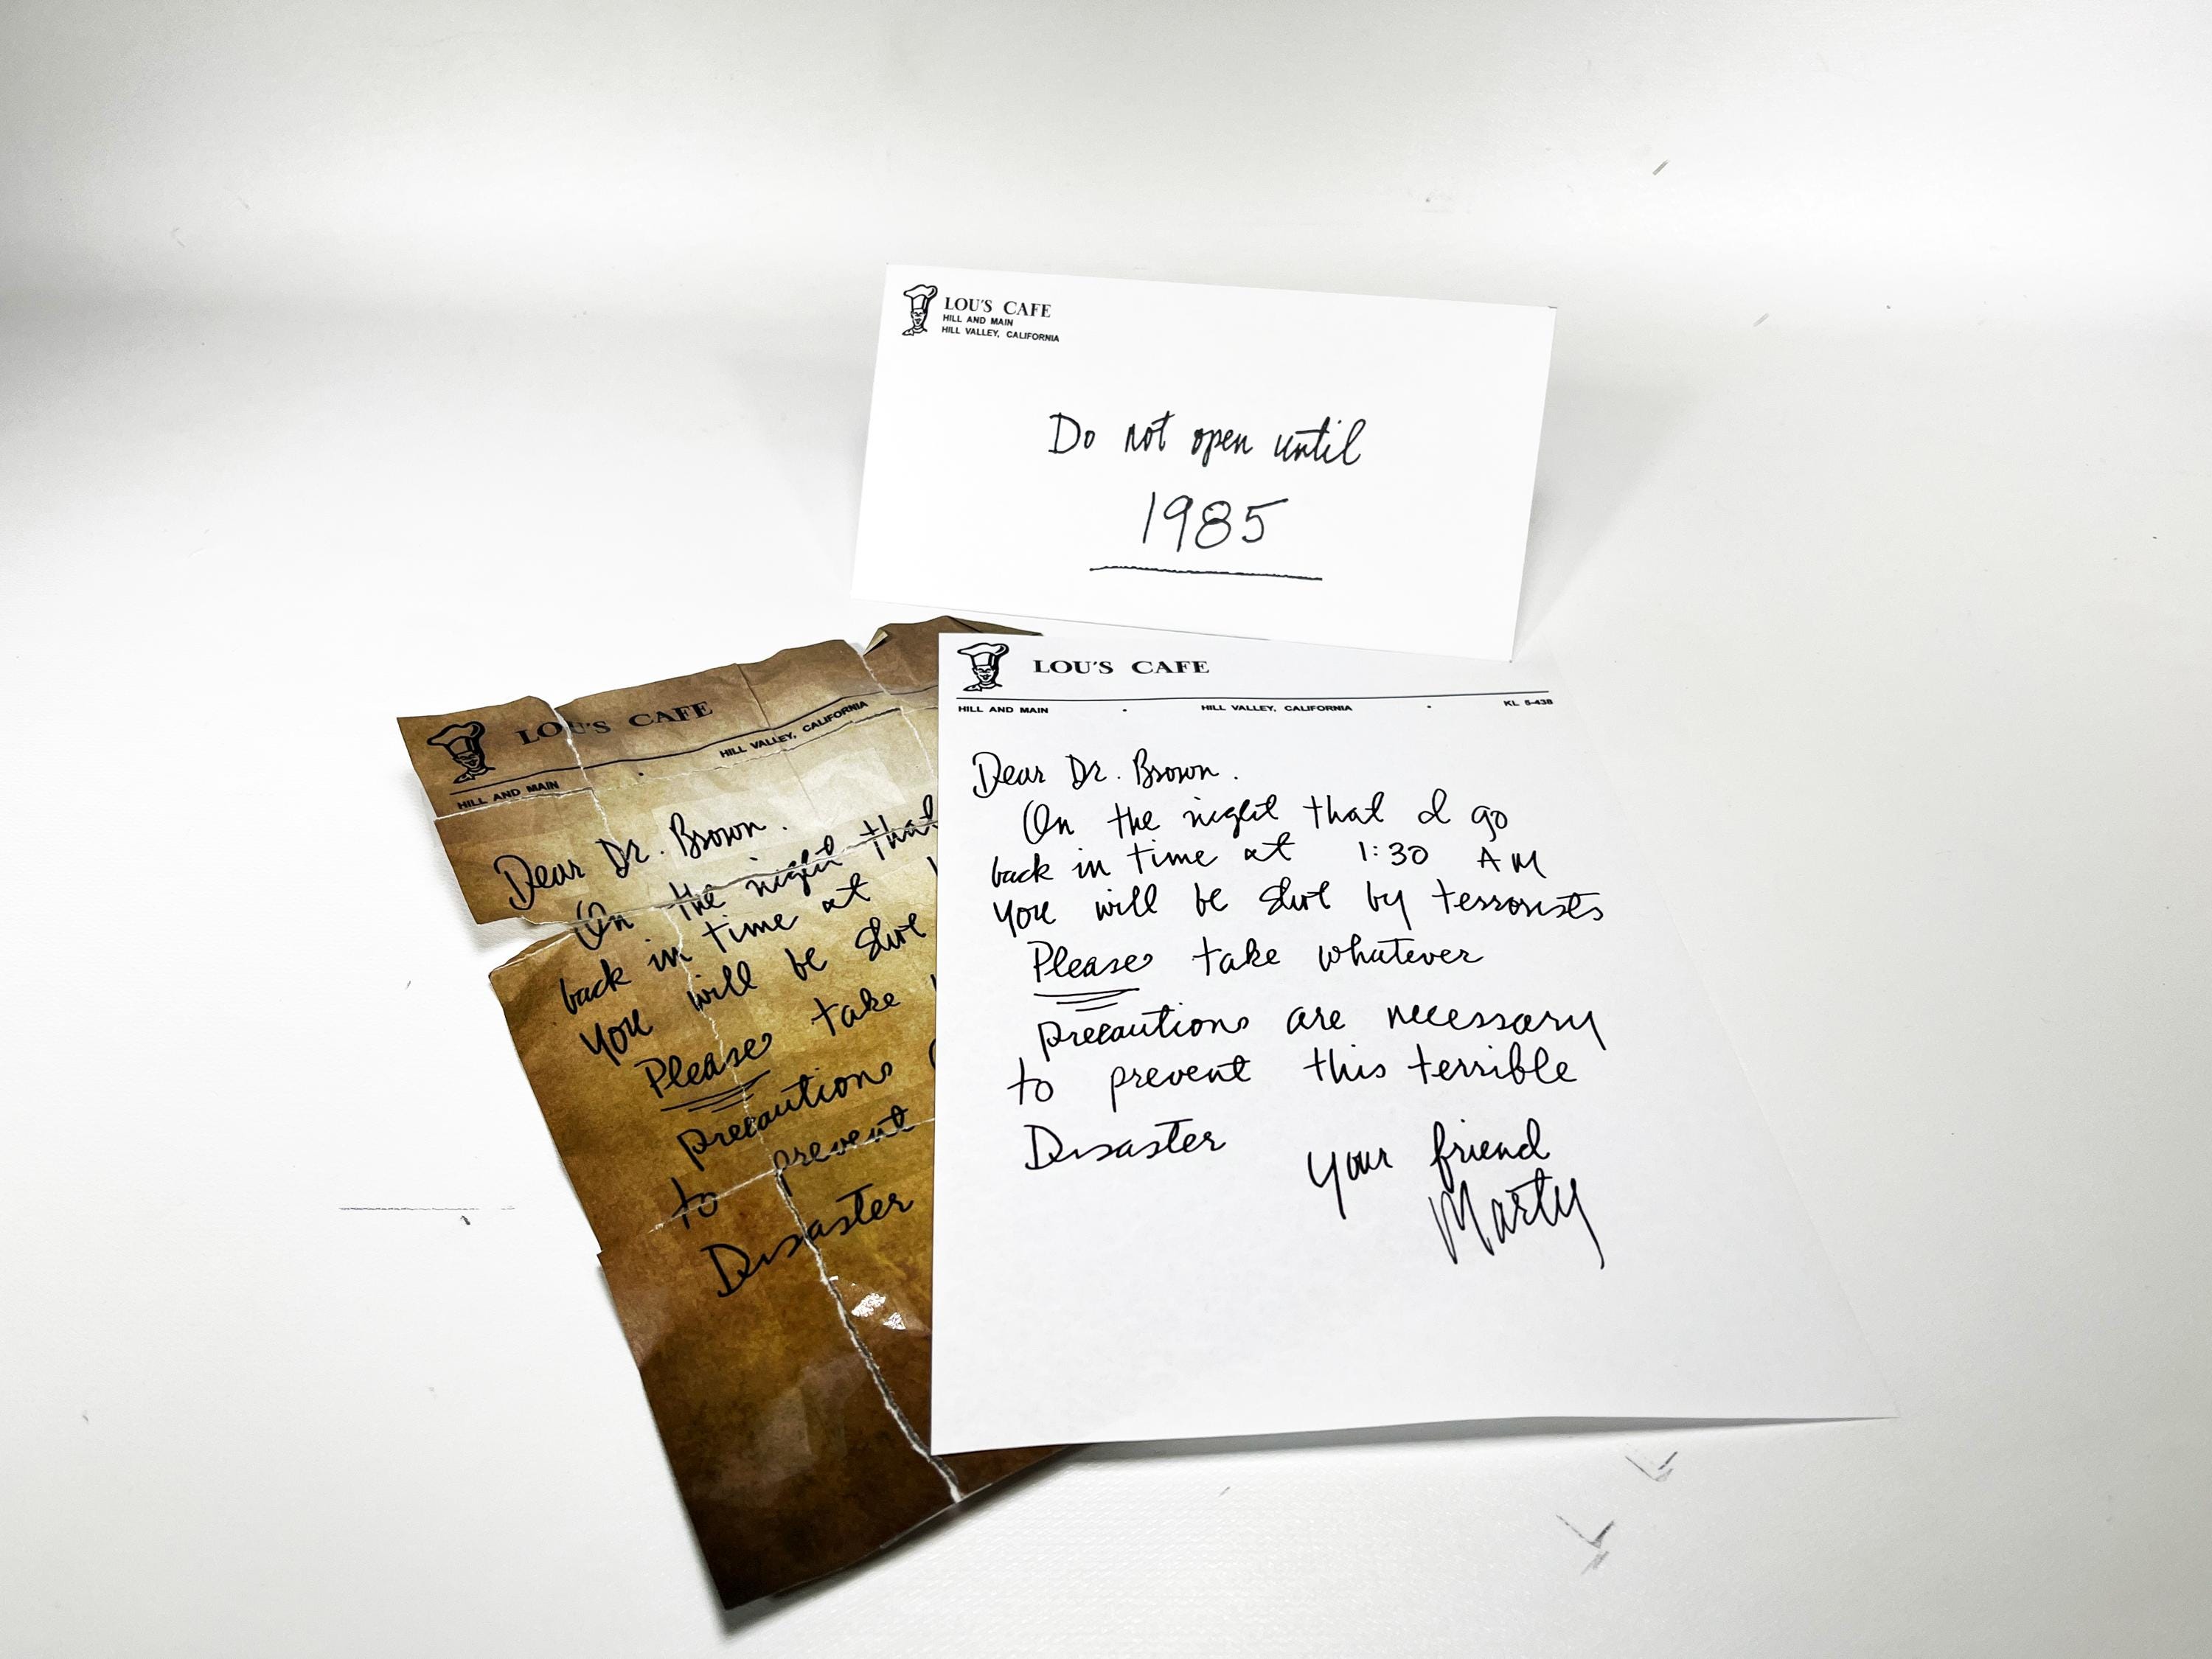 LOU'S CAFE
HILL AND MAIN
HILL VALLEY, CALIFORNIA
Do not open until
1985
LOU'S CAFE
HILL AND MAIN · HILL VALLEY, CALIFORNIA · KL 5-438
Dear Dr. Brown.
On the night that I go
back in time at 1:30 AM
you will be shot by terrorists
Please take whatever
precautions are necessary
to prevent this terrible
Disaster
your friend
Marty
LOU'S CAFE
HILL AND MAIN · HILL VALLEY, CALIFORNIA
Dear Dr. Brown.
On the night that
back in time at
you will be shot
Please take
precautions
to prevent
Disaster